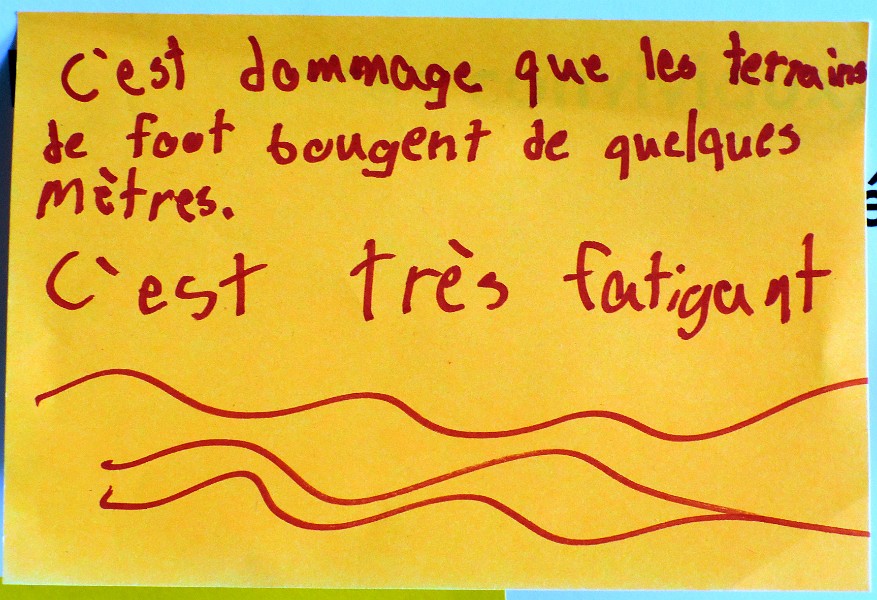 C'est dommage que les terrains
de foot bougent de quelques
mètres.
C'est très fatigant